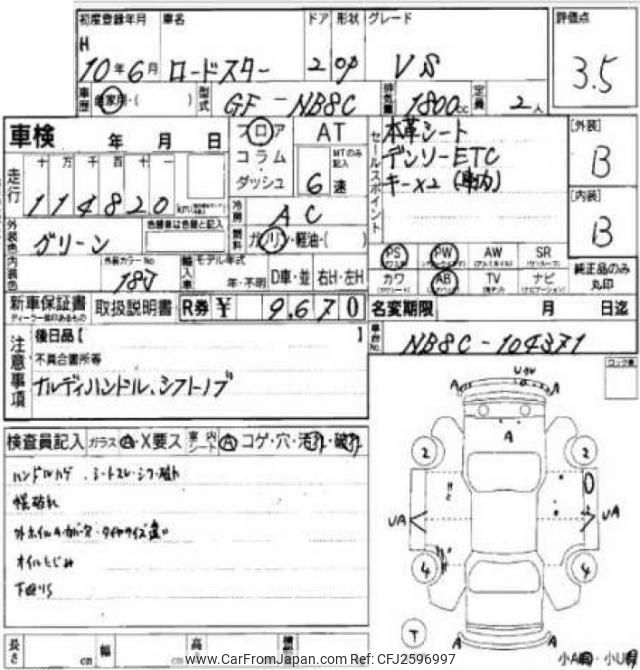 初度登録年月 車名 ドア 形状 グレード 評価点
H 10年6月 ロードスター 2 OP VS 3.5
車歴 自家用・( ) 型式 GF-NB8C 排気量 1800cc 定員 2人
車検 年 月 日 フロア AT セールスポイント 本革シート [外装]
コラム・ MTのみ記入 デンソーETC B
走行 十 万 千 百 十 一 ダッシュ 6速 キー×2
114820 km 冷房 AC [内装]
外装色 グリーン 色替車は色替と記入 燃料 ガソリン・軽油・( ) B
PS PW AW SR
内装色 外装カラーNo 18J 輸入車 モデル年式 年・不明 D車・並 右H・左H カワ AB TV ナビ 純正品のみ丸印
新車保証書 取扱説明書 R券 ¥ 9,670 名変期限 月 日迄
ディーラー捺印あるもの
注意事項 後日品【 】 車台No. NB8C-104371
不具合箇所等 コック車
ナルディハンドル、シフトノブ
検査員記入 ガラス A・X要ス 室内シート A コゲ・穴・汚れ・破れ
ハンドルハゲ、シートスレ・シワ・破れ
幌破れ
タイヤサイズ違い
オイルにじみ
下廻りS
長さ cm 幅 cm 高 小A 小U
A A
A
2 2
UA UA
4 4
T A A
www.CarFromJapan.com Ref: CFJ2596997